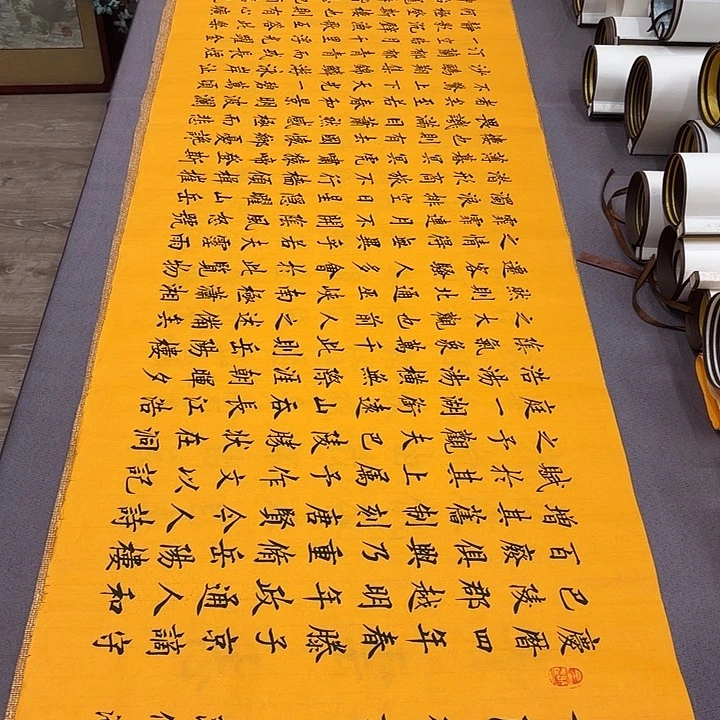 慶曆四年春滕子京謫守
巴陵郡越明年政通人和
百廢俱興乃重脩岳陽樓
增其舊制刻唐賢今人詩
賦於其上屬予作文以記
之予觀夫巴陵勝狀在洞
庭一湖銜遠山吞長江浩
浩湯湯橫無際涯朝暉夕
陰氣象萬千此則岳陽樓
之大觀也前人之述備矣
然則北通巫峽南極瀟湘
遷客騷人多會於此覽物
之情得無異乎若夫霪雨
霏霏連月不開陰風怒號
濁浪排空日星隱耀山岳
潛形商旅不行檣傾楫摧
薄暮冥冥虎嘯猿啼登斯
樓也則有去國懷鄉憂讒
畏譏滿目蕭然感極而悲
者矣至若春和景明波瀾
不驚上下天光一碧萬頃
沙鷗翔集錦鱗游泳岸芷
汀蘭郁郁青青而或長煙